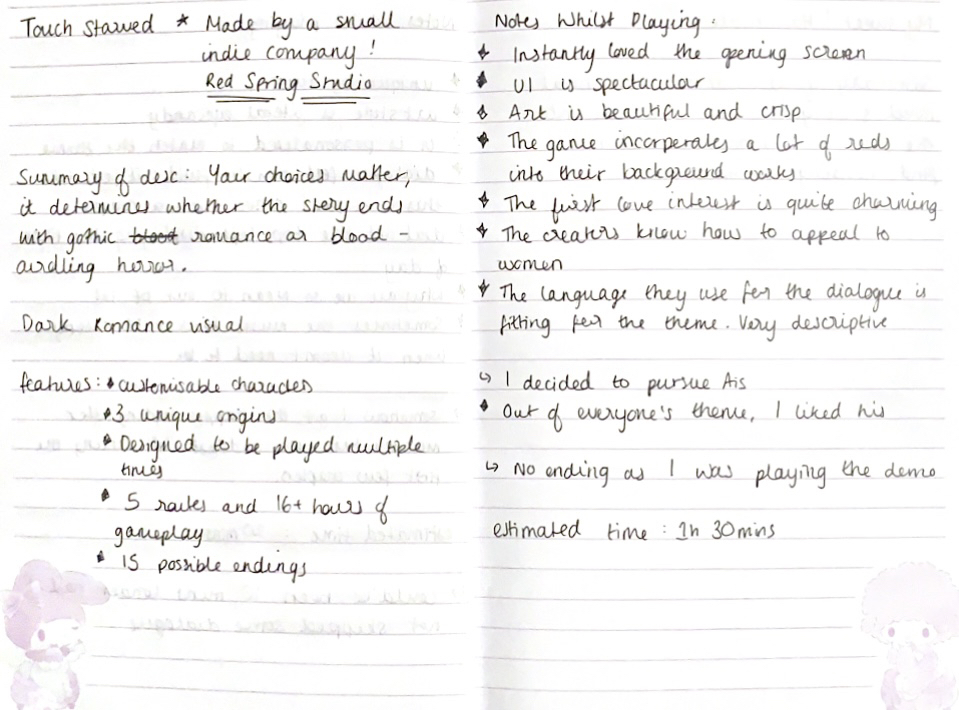 Touch Starved * Made by a small
indie company!
Red Spring Studio
Summary of desc: Your choices matter,
it determines whether the story ends
with gothic blood romance or blood -
curdling horror.
Dark Romance visual
features: customisable character
3 unique origins
Designed to be played multiple
times
5 routes and 16+ hours of
gameplay
15 possible endings
Notes Whilst Playing.
Instantly loved the opening screen
UI is spectacular
Art is beautiful and crisp
The game incorperates a lot of reds
into their background works
The first love interest is quite charming
The creators know how to appeal to
women
The language they use for the dialogue is
fitting for the theme. Very descriptive
↳ I decided to pursue Ais
Out of everyone's theme, I liked his
↳ No ending as I was playing the demo
estimated time : 1h 30mins